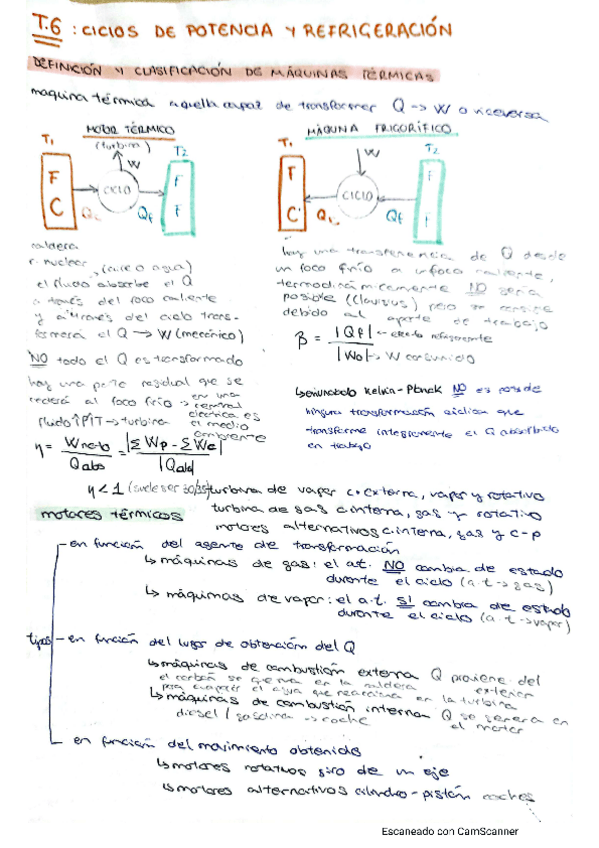 T.6 : CICLOS DE POTENCIA Y REFRIGERACIÓN
DEFINICIÓN Y CLASIFICACIÓN DE MÁQUINAS TÉRMICAS
maquina térmica aquella capaz de transformar Q → W o viceversa
MOTOR TÉRMICO
(turbina)
T1
T2
W
F
C
CICLO
F
F
Qc
Qf
MÁQUINA FRIGORÍFICO
T1
T2
W
F
C
CICLO
F
F
Qc
Qf
caldera
r. nuclear (aire o agua)
el fluido absorbe el Q
a través del foco caliente
y a través del ciclo trans-
formará el Q → W (mecánico)
NO todo el Q es transformado
hay una parte residual que se
cederá al foco frío → en una
central
eléctrica es
el medio
ambiente
fluido ↑P↑T → turbina
η = Wneto / Qabs = |Σ Wp - Σ Wc| / |Qabs|
η < 1 (suele ser 30/35)
hay una transferencia de Q desde
un foco frío a un foco caliente,
termodinámicamente NO sería
posible (Clausius) pero se consigue
debido al aporte de trabajo
β = |Qf| → efecto refrigerante / |Wo| → W consumido
↳ enunciado Kelvin-Planck NO es posible
ninguna transformación cíclica que
transforme íntegramente el Q absorbido
en trabajo
turbina de vapor c. externa, vapor y rotativo
turbina de gas c. interna, gas y rotativo
motores alternativos c. interna, gas y c-p
motores térmicos
tipos
en función del agente de transformación
↳ máquinas de gas: el a.t. NO cambia de estado
durante el ciclo (a.t → gas)
↳ máquinas de vapor: el a.t. SI cambia de estado
durante el ciclo (a.t → vapor)
en función del lugar de obtención del Q
↳ máquinas de combustión externa Q proviene del
exterior
el carbón se quema en la caldera
para evaporar el agua que reacciona en la turbina
↳ máquinas de combustión interna Q se genera en
el motor
diesel / gasolina → coche
en función del movimiento obtenido
↳ motores rotativos giro de un eje
↳ motores alternativos cilindro-pistón coches
Escaneado con CamScanner